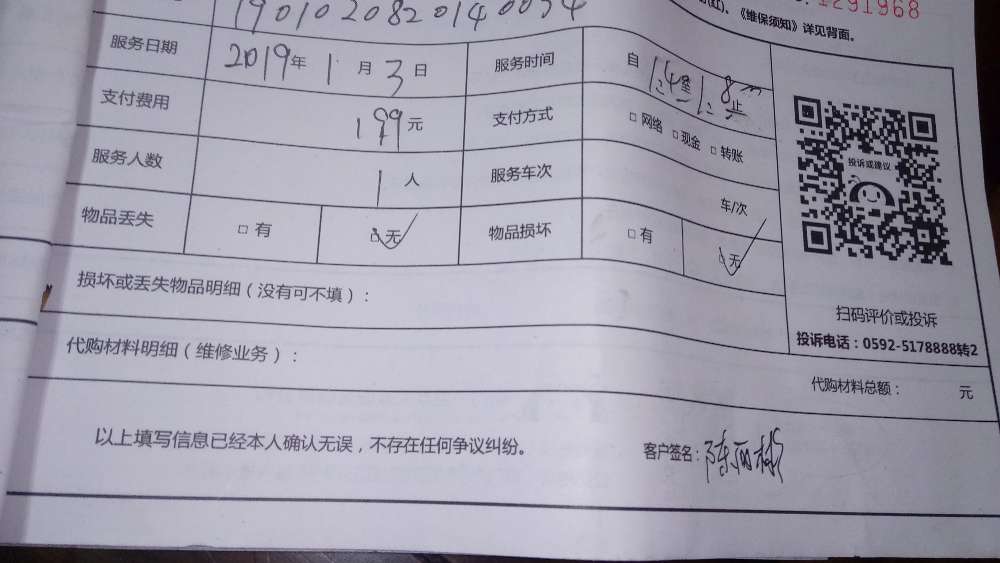 1901020820140034
1291968
《维保须知》详见背面。
服务日期 2019年1月3日 服务时间 自 1:4 至 1:8 止
支付费用 199元 支付方式 □网络 □现金 □转账
服务人数 1人 服务车次 车/次
物品丢失 □有 □无 物品损坏 □有 □无
投诉或建议
扫码评价或投诉
投诉电话：0592-5178888转2
损坏或丢失物品明细（没有可不填）：
代购材料明细（维修业务）：
代购材料总额： 元
以上填写信息已经本人确认无误，不存在任何争议纠纷。
客户签名：陈丽彬